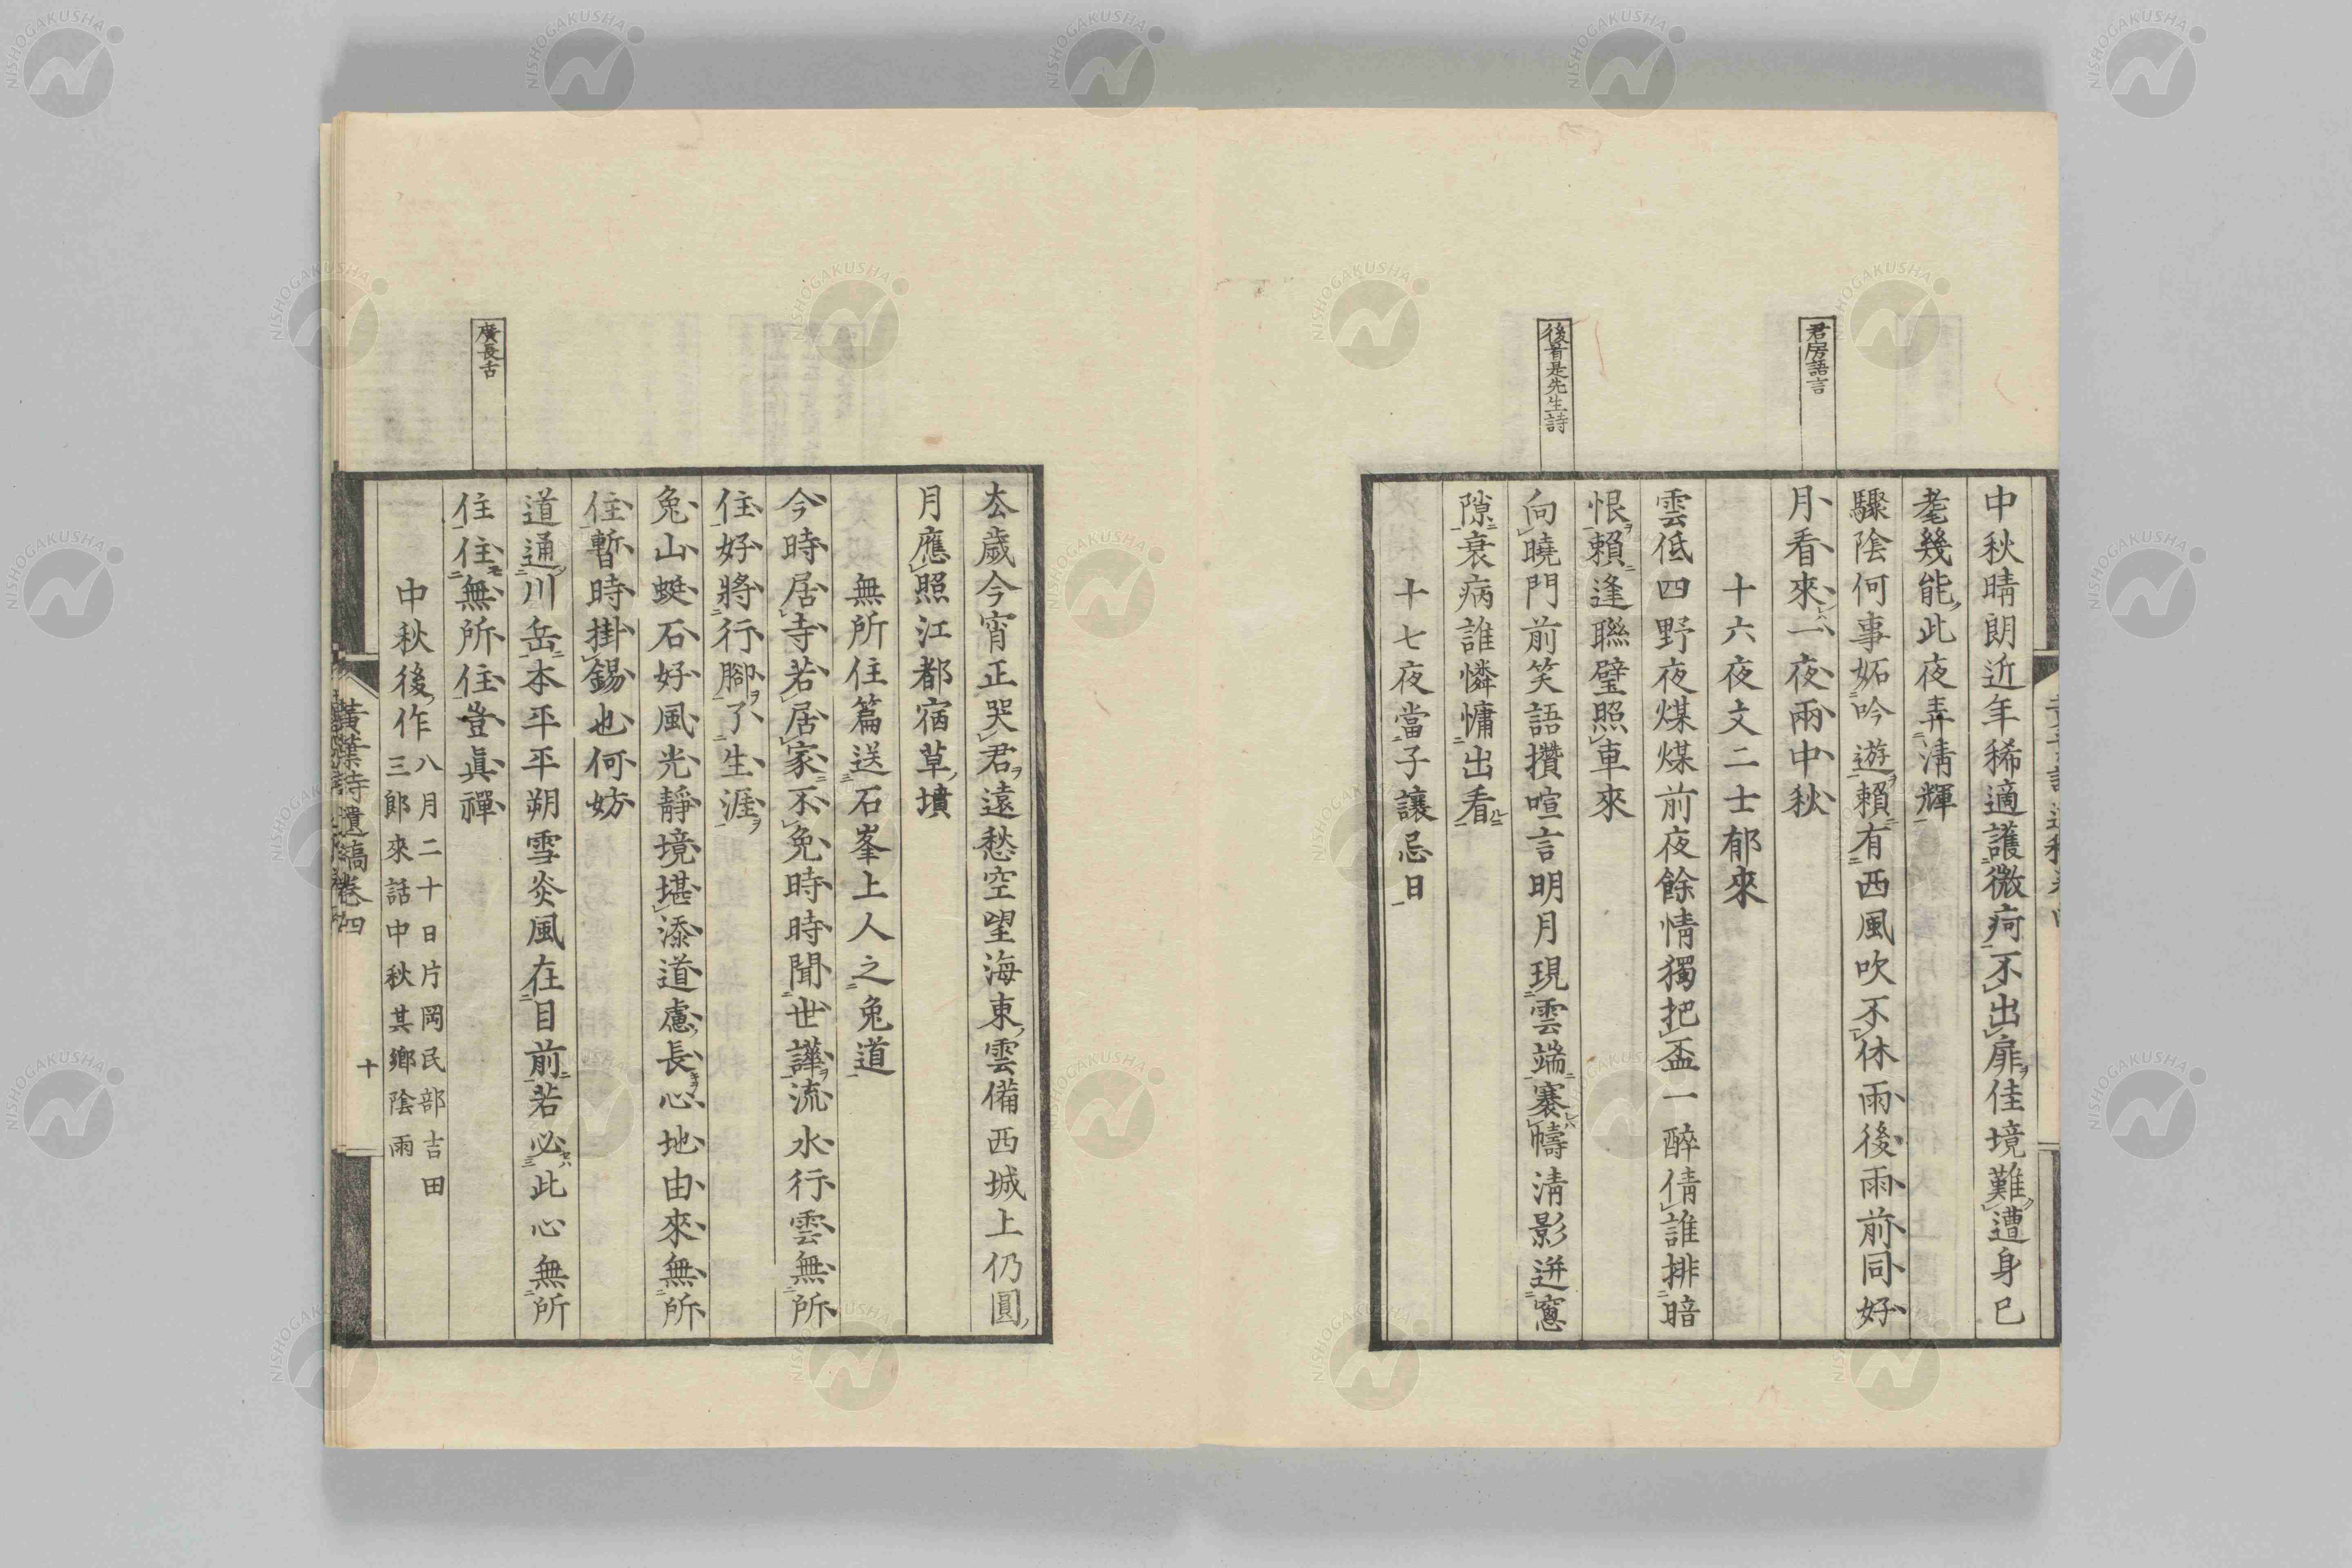 君房語言
後首是先生詩
中秋晴朗近年稀適護微疴不出扉佳境難遭身已
耄幾能此夜弄淸輝
驟陰何事妬吟遊賴有西風吹不休雨後雨前同好
月看來一夜兩中秋
十六夜文二士郁來
雲低四野夜煤煤前夜餘情獨把盃一醉倩誰排暗
恨賴逢聯璧照車來
向曉門前笑語攢喧言明月現雲端褰幬淸影迸窻
隙衰病誰憐慵出看
十七夜當子讓忌日
廣長舌
去歲今宵正哭君遠愁空望海東雲備西城上仍圓
月應照江都宿草墳
無所住篇送石峯上人之兔道
今時居寺若居家不免時時聞世譁流水行雲無所
住好將行腳了生涯
兔山蜒石好風光靜境堪添道慮長心地由來無所
住暫時掛錫也何妨
道通川岳本平平朔雪炎風在目前若必此心無所
住住無所住豈眞禪
中秋後作八月二十日片岡民部吉田
三郎來話中秋其鄕陰雨
黃葉詩遺稿卷四
十
NISHOGAKUSHA